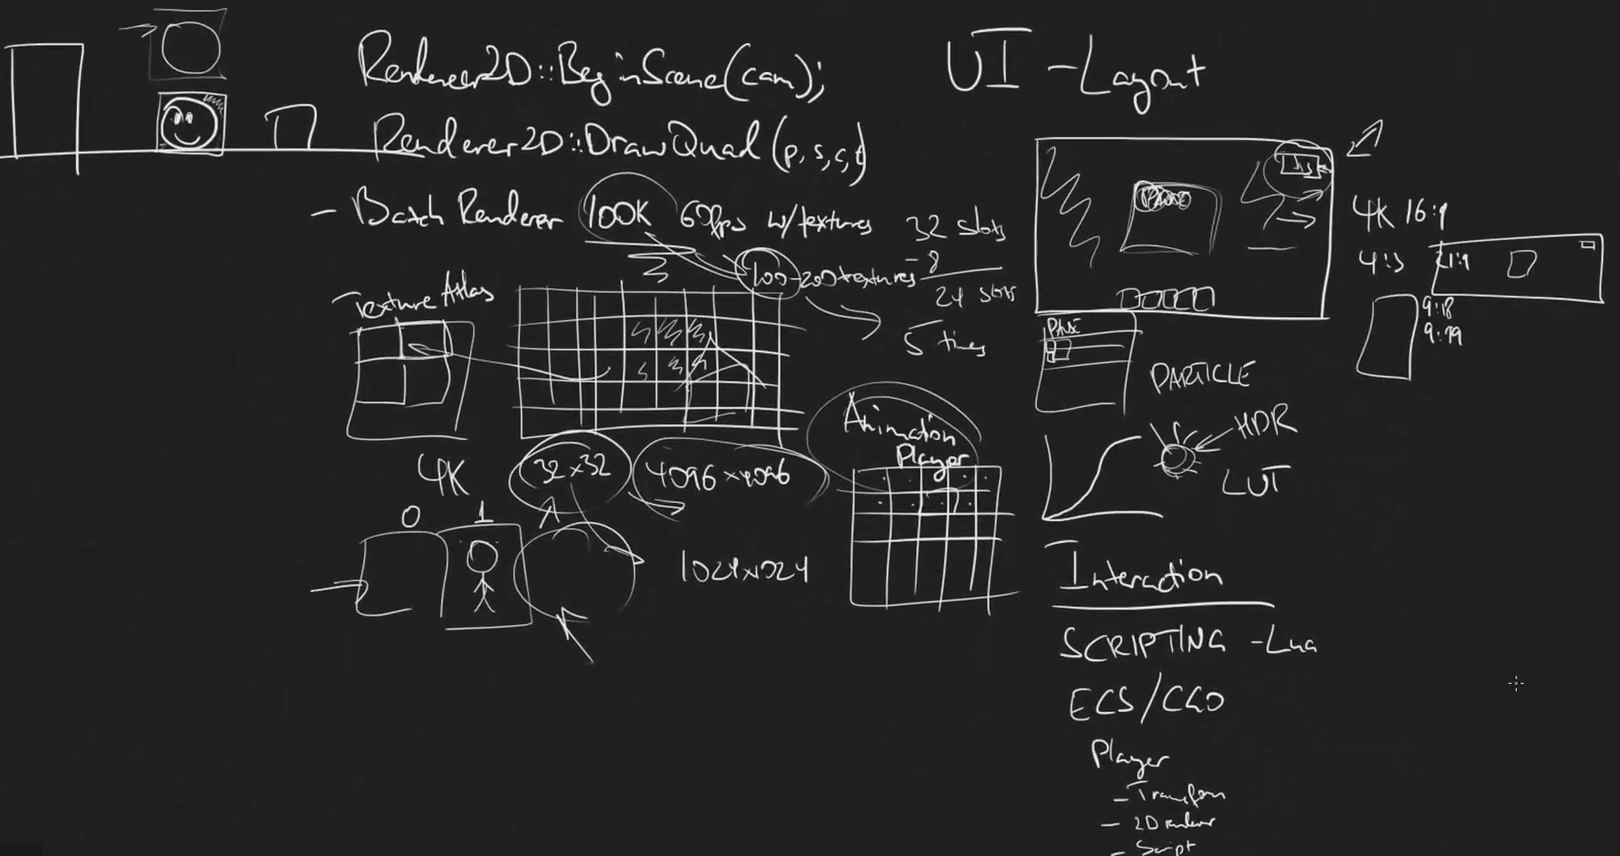 Renderer2D::BeginScene(cam);
Renderer2D::DrawQuad(p, s, c, t)
- Batch Renderer 100K 60fps w/textures
32 slots
- 8
100-200 textures
24 slots
5 times
Texture Atlas
4K
32x32
4096x4096
0 1
1024x1024
Animation
Player
UI - Layout
4K 16:9
4:3
21:9
9:18
9:19
PARTICLE
HDR
LUT
Interaction
SCRIPTING - Lua
ECS/CGO
Player
- Transform
- 2D renderer
- Script